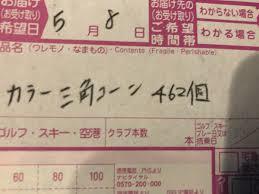 お届け
希望日
(お受け取り)
5 月 8 日
お届け先の
(お受け取り)
ご希望
時間帯
わからない場合
わかる場合
品名 (ワレモノ・なまもの)・Contents (Fragile・Perishable)
カラー三角コーン 462個
ゴルフ・スキー・空港
クラブ本数
ゴルフ・スキー
60
80
100
0570-200-000